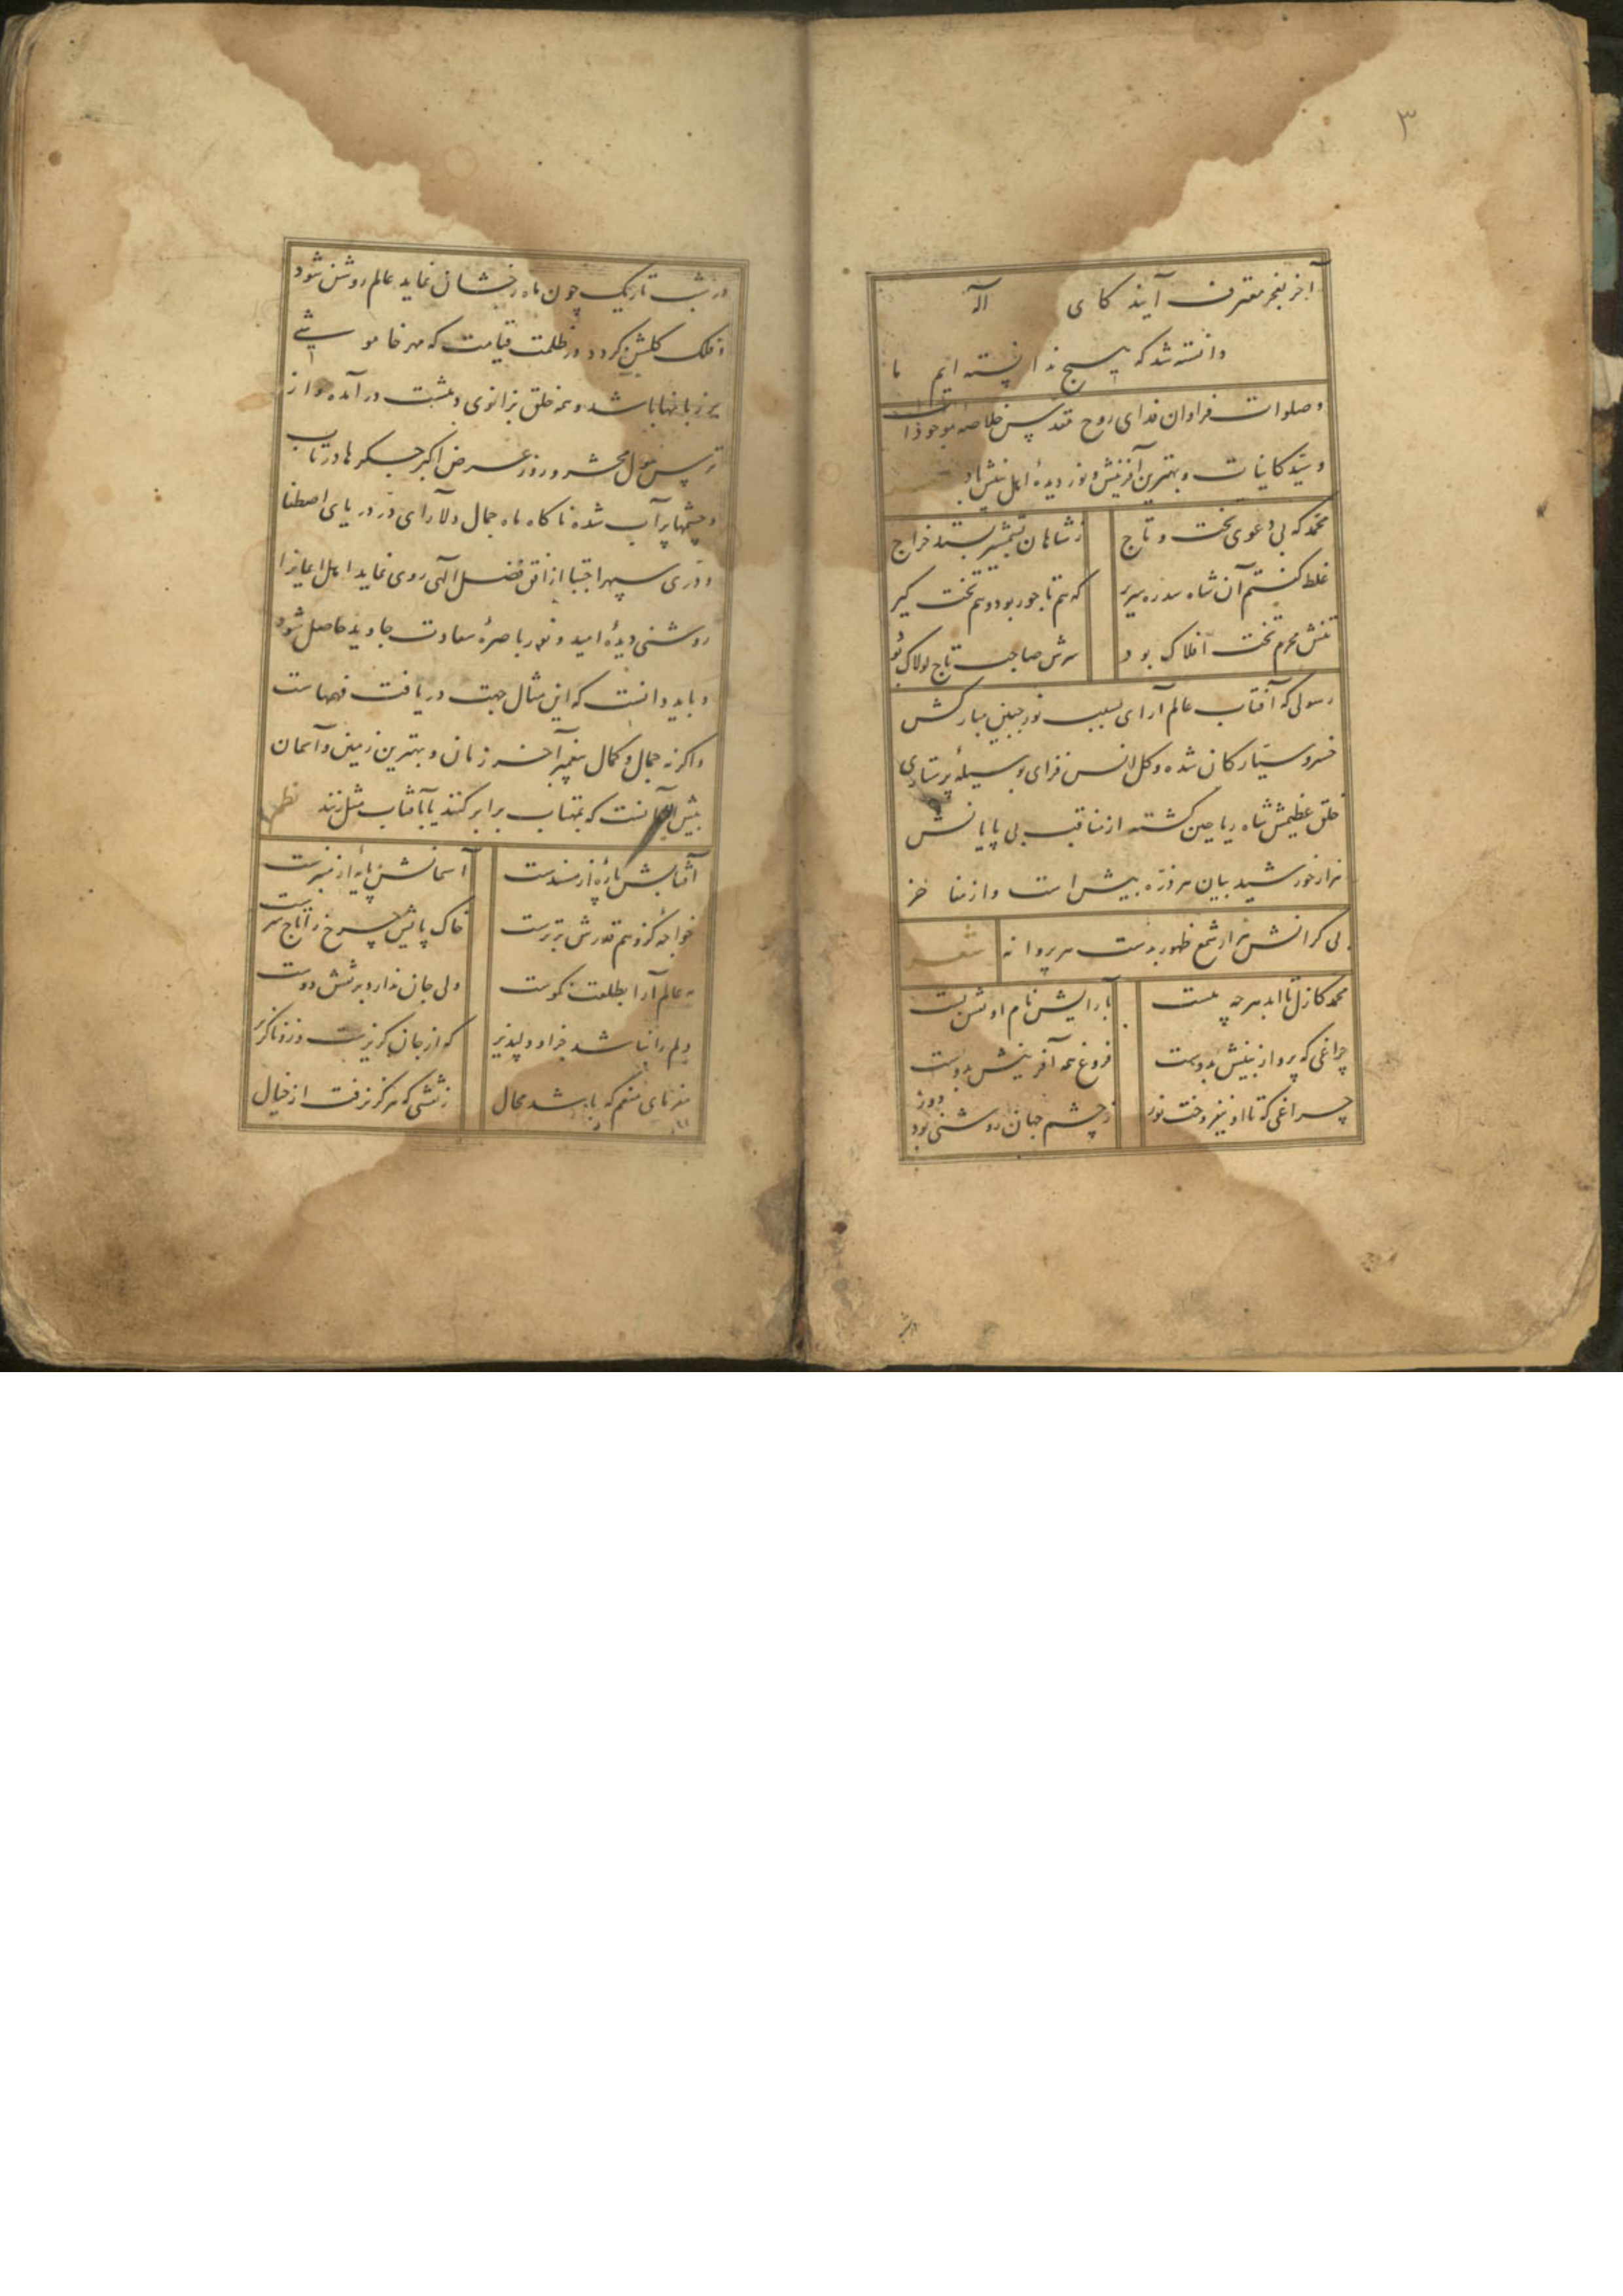 ۳
آخر بعجز معترف آیند کای اله
دانسته شد که هیچ ندانسته ایم ما
وصلوات فراوان فدای روح مقدس خلاصه موجودات
و سید کاینات و بهترین آفرینش و نور دیدهٔ اهل بینش باد
محمد که بی دعوی تخت و تاج
ز شاهان بشمشیر بستد خراج
غلط گفتم آن شاه سدره سریر
که هم تاجور بود و هم تخت گیر
تنش محرم تخت افلاک بود
سرش صاحب تاج لولاک بود
رسولی که آفتاب عالم آرای بسبب نور جبین مبارکش
خسرو سیارکان شده و کل انس فزای بوسیلهٔ پرستاری
خلق عظیمش شاه ریاحین کشته از مناقب بی پایانش
هزار خورشید بیان هر ذره بیش است و از مفاخر
بی کرانش هزار شمع ظهور بدست هر پروانه
شعر
محمد کازل تا ابد هرچه هست
بارایش نام او نقش بست
چراغی که پرواز بینش بدوست
فروغ همه آفرینش بدوست
چراغی که تا او نیفروخت نور
ز چشم جهان روشنی بود دور
در شب تاریک چون ماه رخشان نماید عالم روشن شود
و فلک کلشن کردد در ظلمت قیامت که مهر خاموشی
بر زبانها باشد و همه خلق بزانوی در آمده و از
ترس هول محشر و روز عرض اکبر جکرها در تاب
و چشمها پر آب شده ناکاه ماه جمال دلارای در دریای اصطفا
و دری سپهر اجتبا از افق فضل الهی روی نماید اهل ایمانرا
روشنی دیدهٔ امید و نور باصرهٔ سعادت جاوید حاصل شود
و باید دانست که این مثال جهت دریافت فهماست
واکرنه جمال و کمال پیغمبر آخر زمان و بهترین زمین و آسمان
بیش از آنست که بمهتاب برابر کنند یا بآفتاب مثل زنند نظم
آفتابش پاره از مسندست
آسمانش پایه از منبرست
خواجه کز وهم قدرش برترست
خاک پایش چرخ را تاج سرست
مه عالم آرا بطلعت نکوست
ولی جان ندارد برش دوست
دلم را نباشد جز او دلپذیر
که از جان کریزست وز و ناکزیر
که باشد محال
ز نقشی که هرکز نرفت از خیال